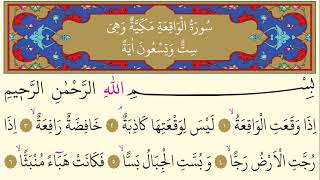 سُورَةُ الْوَاقِعَةِ مَكِّيَّةٌ وَهِيَ
سِتٌّ وَتِسْعُونَ اٰيَةً
بِسْـــمِ اللّٰهِ الرَّحْمٰنِ الرَّحٖيمِ
اِذَا وَقَعَتِ الْوَاقِعَةُۙ ﴿١﴾ لَيْسَ لِوَقْعَتِهَا كَاذِبَةٌۢ ﴿٢﴾ خَافِضَةٌ رَافِعَةٌۙ ﴿٣﴾ اِذَا
رُجَّتِ الْاَرْضُ رَجًّاۙ ﴿٤﴾ وَبُسَّتِ الْجِبَالُ بَسًّاۙ ﴿٥﴾ فَكَانَتْ هَبَٓاءً مُنْبَثًّاۙ ﴿٦﴾